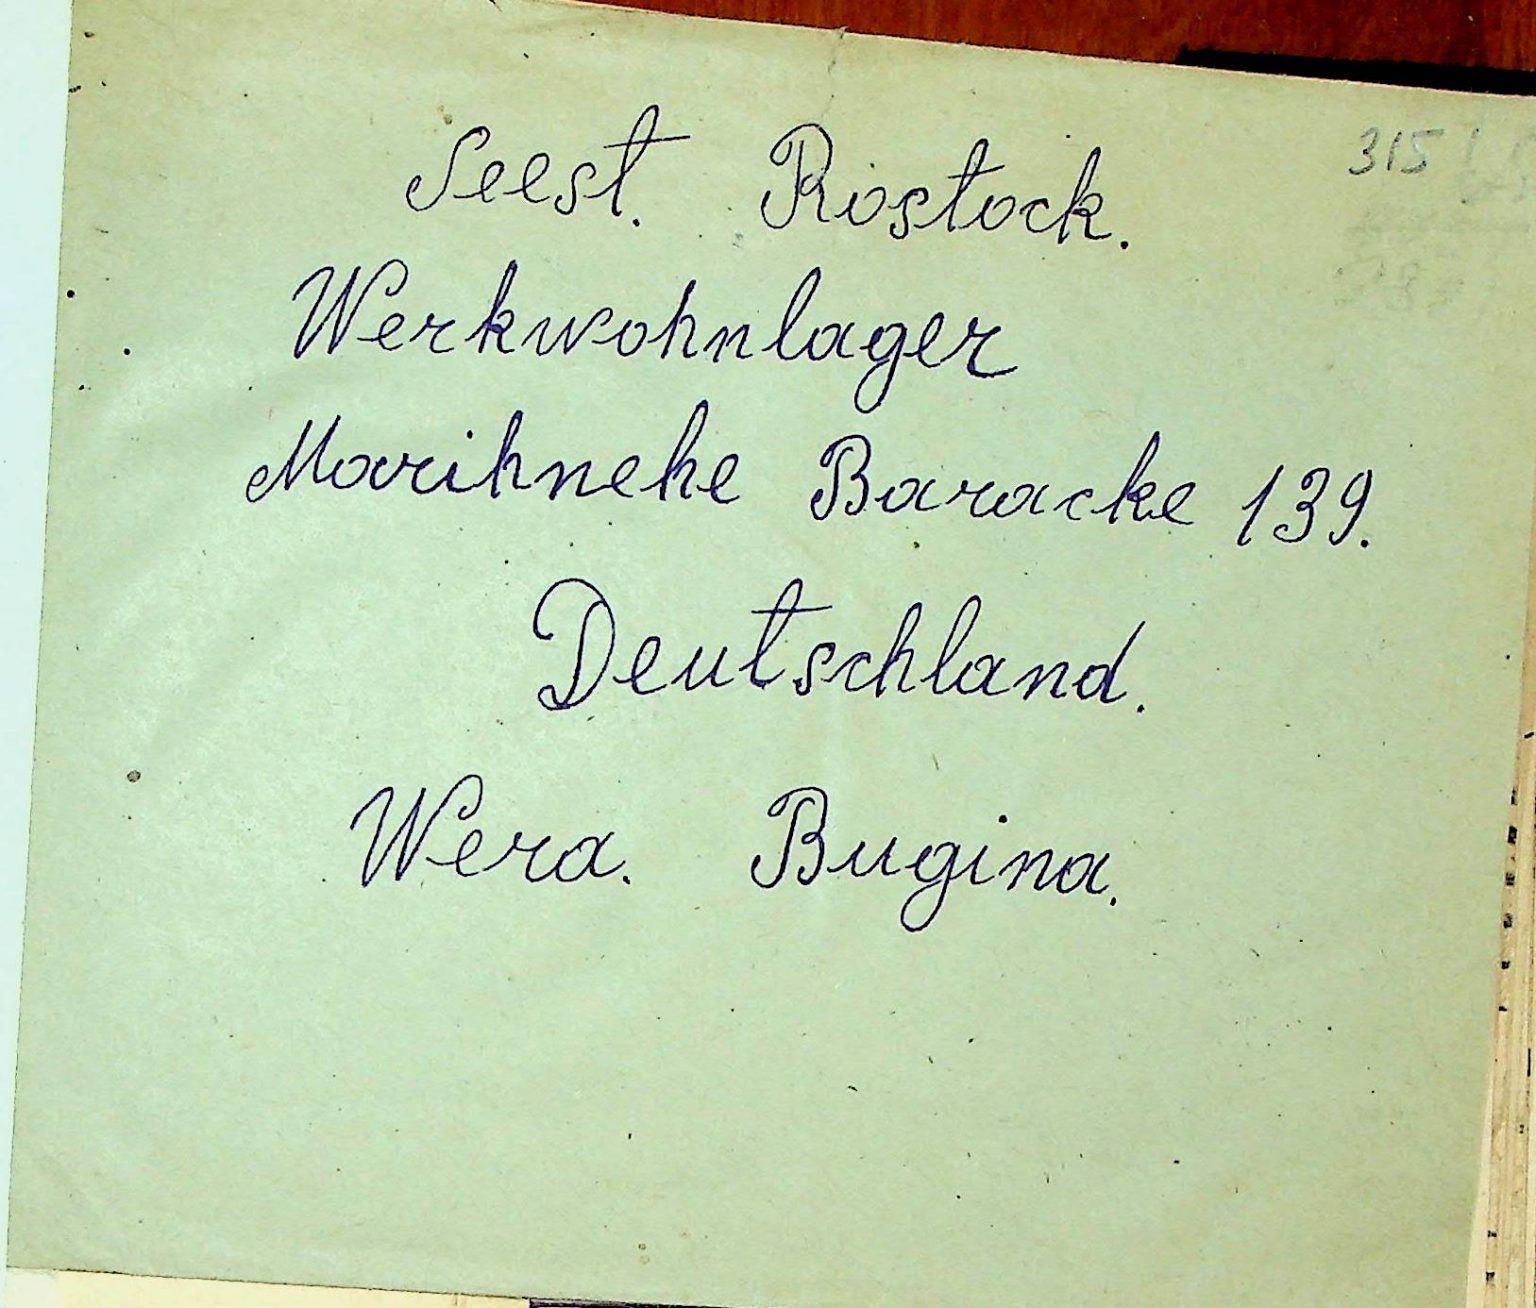 Seest. Rostock.
315
Werkwohnlager
Marihnehe Baracke 139.
Deutschland.
Wera. Bugina.